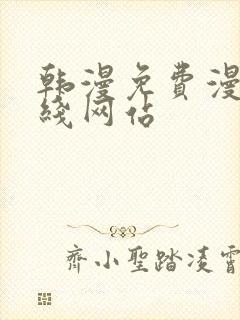 韩漫免费漫
线网佔
齐小聖踏凌霄